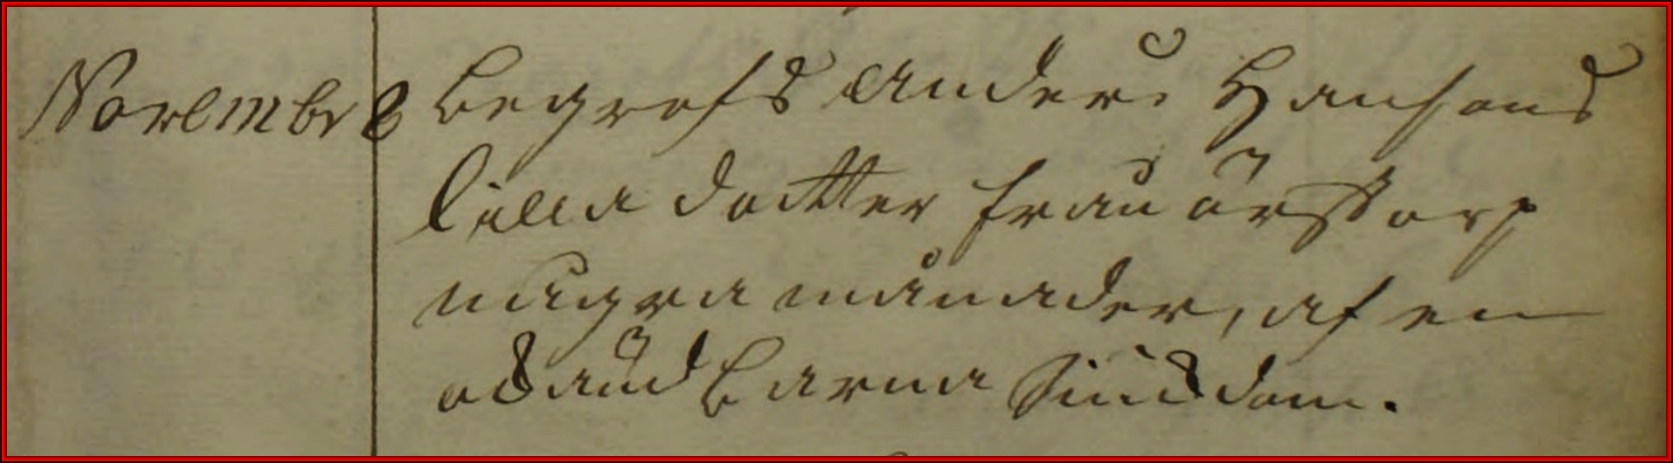 Novembr 8 begrofs Anders Hansons
lilla dotter fram örstorp
några månader, af en
okänd barna siukdom.